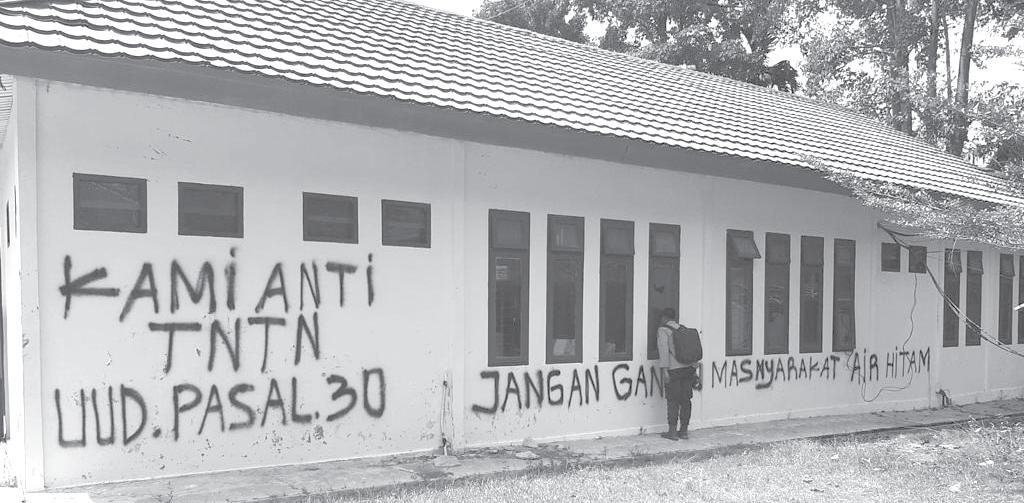 KAMi ANTi
TNTN
UUD.PASAL.30
JANGAN GAN MASYARAKAT AiR HiTAM